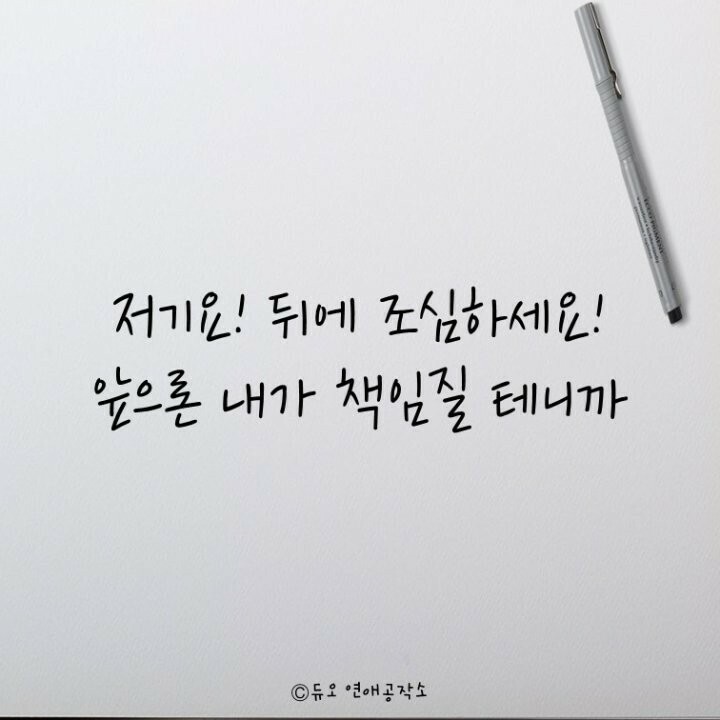 저기요! 뒤에 조심하세요!
앞으론 내가 책임질 테니까
ⓒ듀오 연애공작소